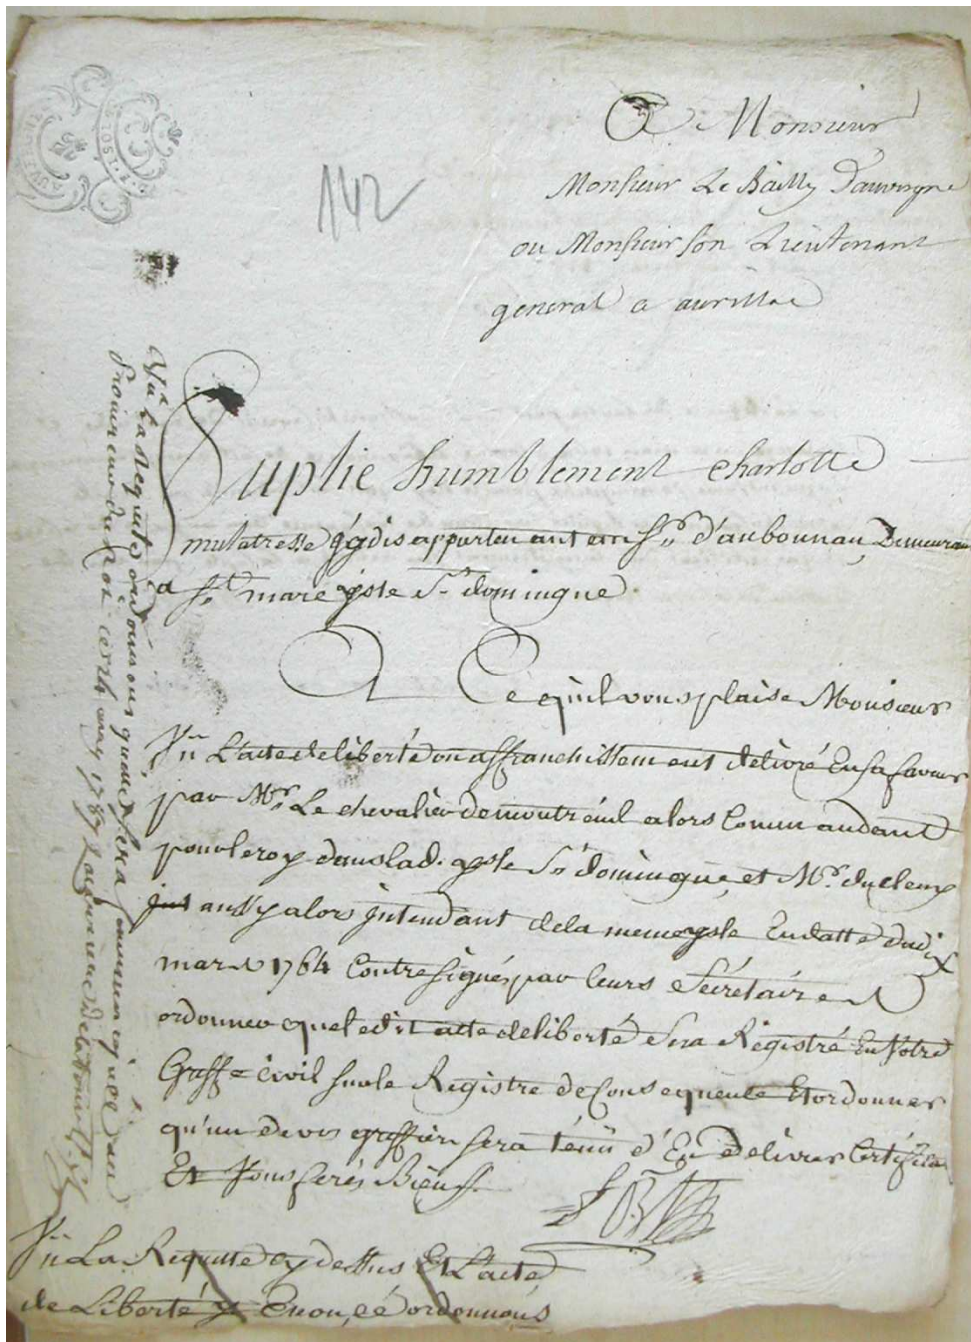 142
A Monsieur
Monsieur Le Bailly D'auvergne
ou Monsieur son Lieutenant
general a aurillac
Suplie humblement charlotte
mulatresse appartenant au Sr. d'aubonnau, Demeurant
a St. marc ysle St. domingue
A Ce quil vous plaise Monsieur
Vû L'acte de liberté ou affranchissement delivré En sa faveur
par Mr. Le chevalier de montreüil alors Commandant
pour le roy dans lad. ysle St. domingue, et Mr. du cleny
aussy alors jntendant de la meme ysle En datte du dix
mars 1764 Contresignés par leurs Sécretaires
ordonner que ledit acte de liberté Sera Régistré En votre
Greffe civil sur le Régistre de Consequence Et ordonner
qu'un de vos greffiers sera ténû d'En delivrer Certifficat
Et vous ferés Bien
Vû La Requette cy dessus Et L'acte
de Liberté y Enoncé ordonnons
Vû La Requete ordonnons quelle sera communiquée au
Procureur du Roi ce 1787